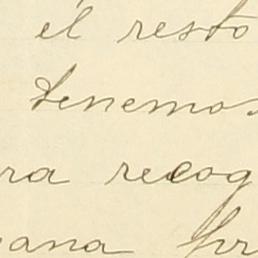 el resto
tenemos
ra recog
ana pr